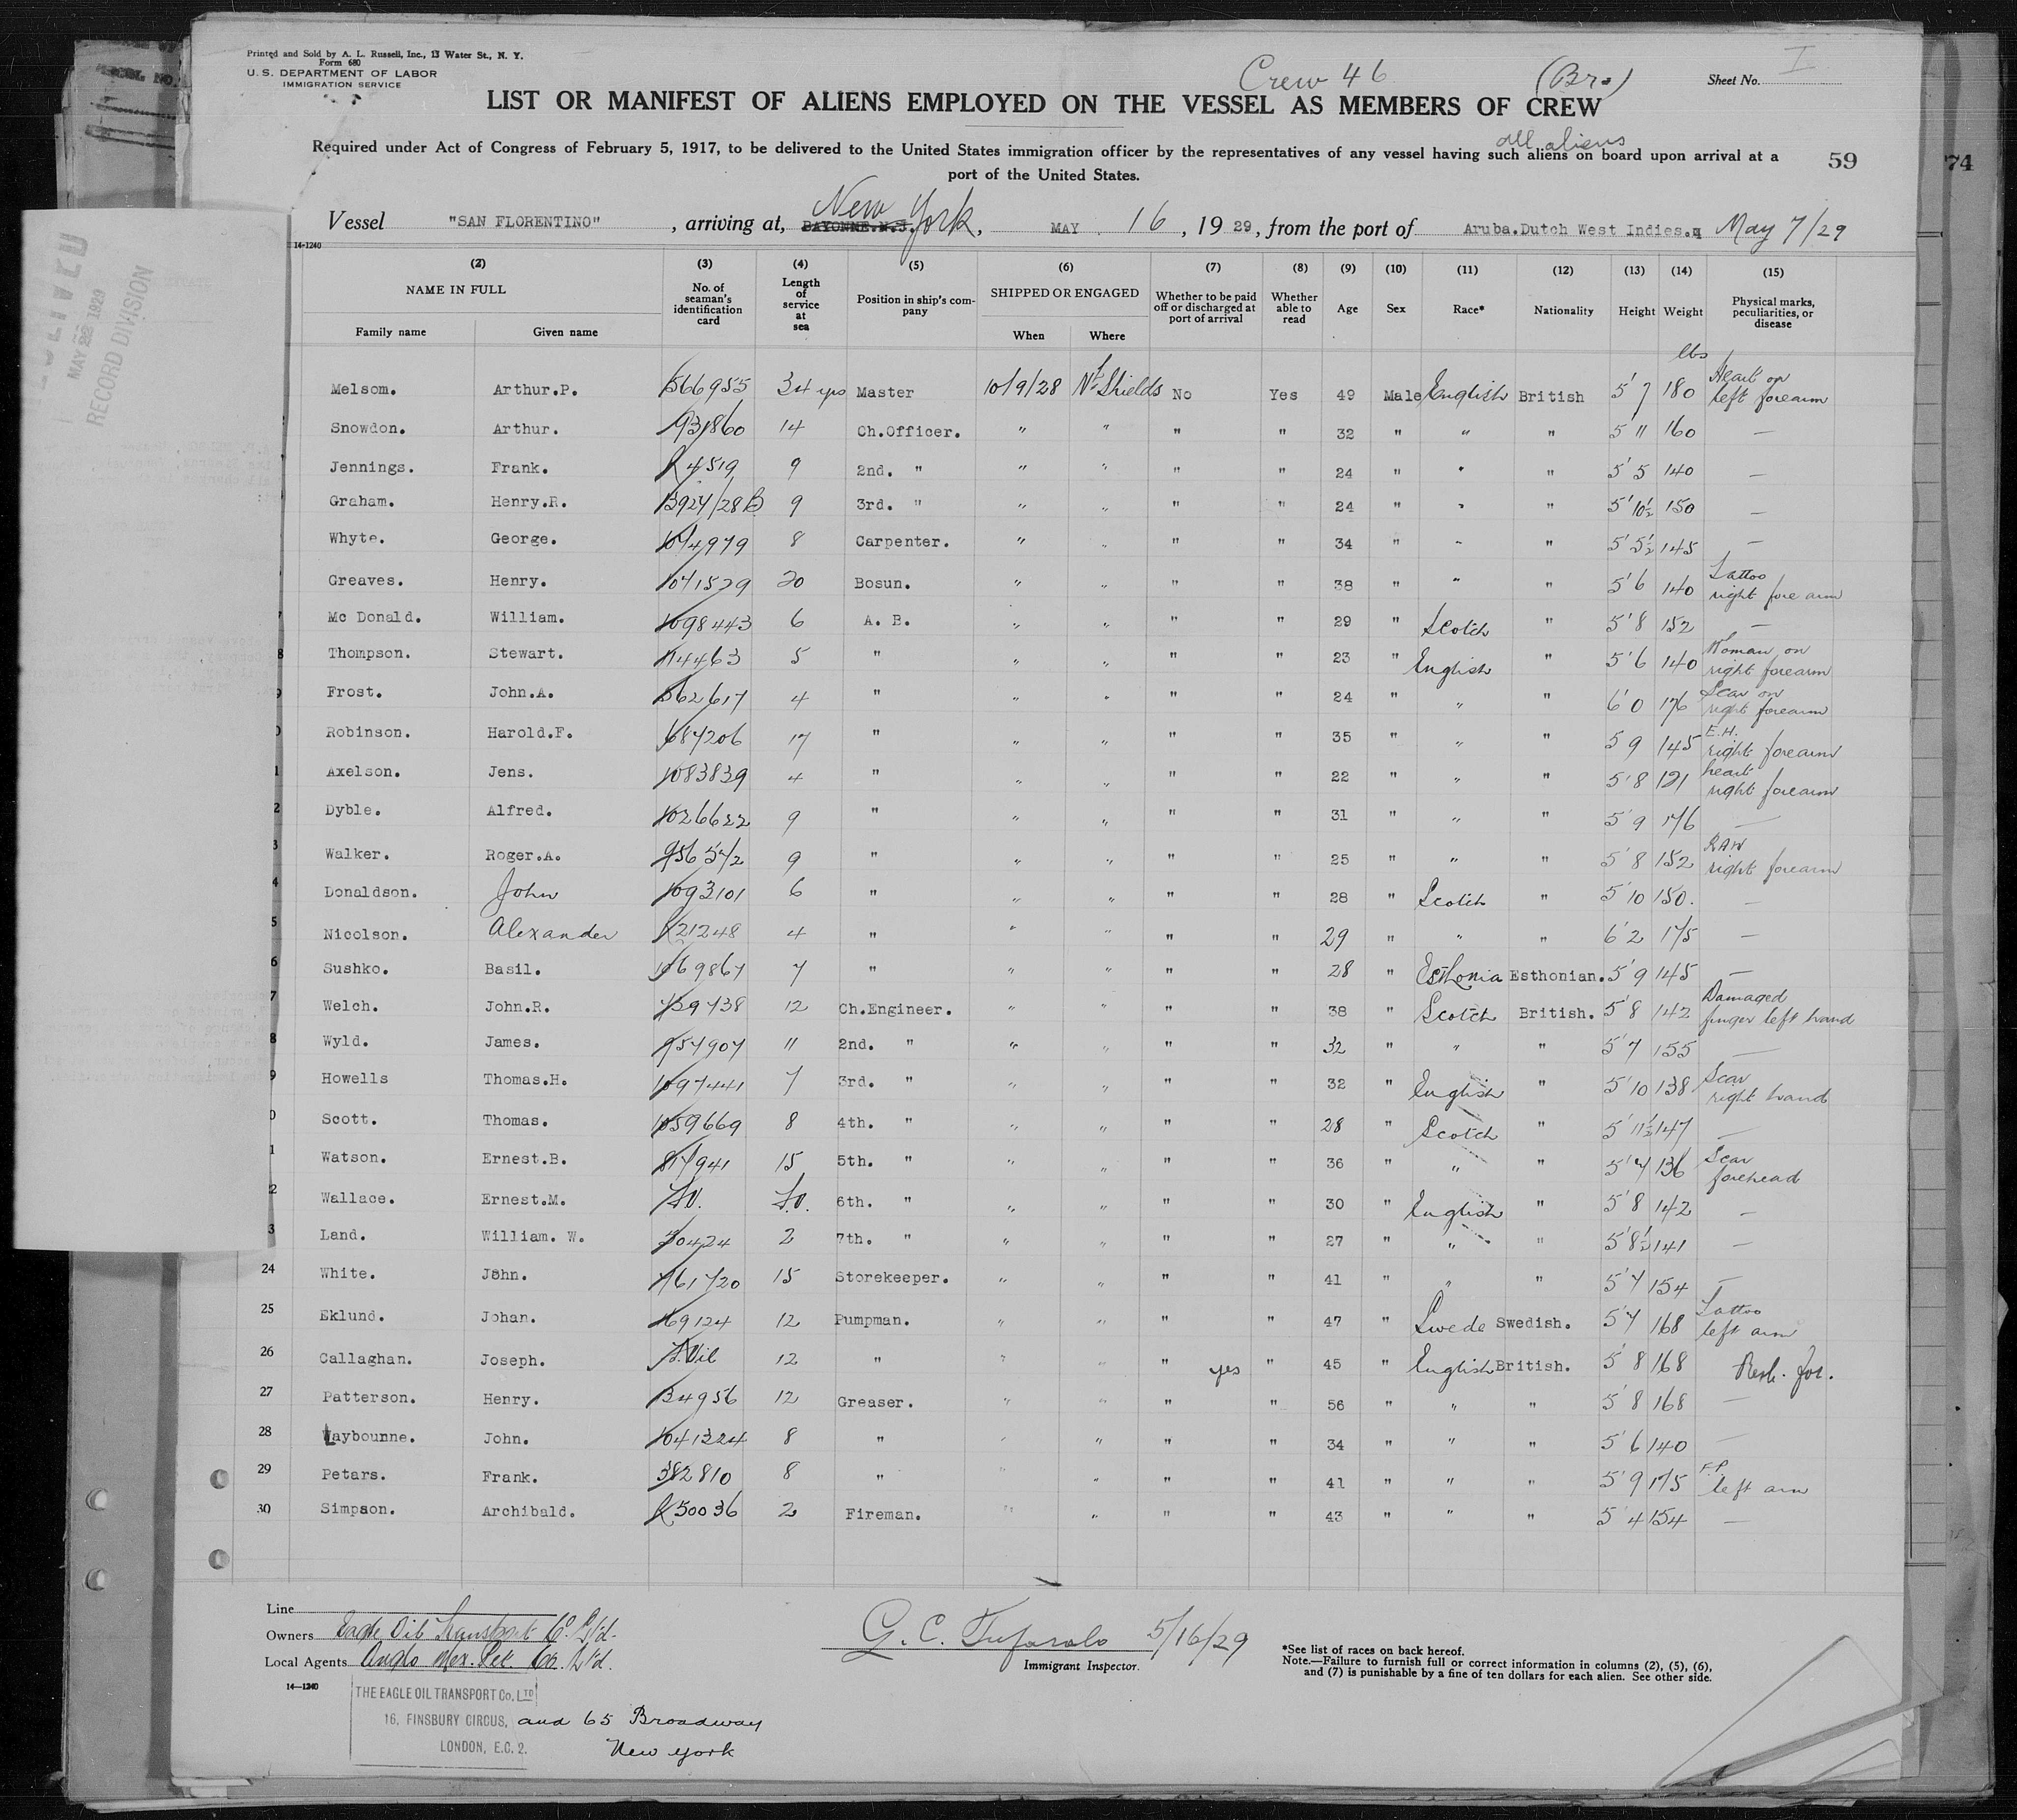 Printed and Sold by A. L. Russell, Inc., 13 Water St., N. Y.
Form 680
U. S. DEPARTMENT OF LABOR
IMMIGRATION SERVICE
Crew 46 (Br.) Sheet No. I
LIST OR MANIFEST OF ALIENS EMPLOYED ON THE VESSEL AS MEMBERS OF CREW
all aliens
Required under Act of Congress of February 5, 1917, to be delivered to the United States immigration officer by the representatives of any vessel having such aliens on board upon arrival at a
port of the United States.
59 74
Vessel "SAN FLORENTINO", arriving at, BAYONNE.N.J. New York, MAY 16, 1929, from the port of Aruba.Dutch West Indies. May 7/29
14-1240
(2) (3) (4) (5) (6) (7) (8) (9) (10) (11) (12) (13) (14) (15)
NAME IN FULL No. of seaman's identification card Length of service at sea Position in ship's company SHIPPED OR ENGAGED Whether to be paid off or discharged at port of arrival Whether able to read Age Sex Race* Nationality Height Weight Physical marks, peculiarities, or disease
Family name Given name When Where
lbs
Melsom. Arthur.P. 566955 34 yrs Master 10/9/28 Nth Shields No Yes 49 Male English British 5'7 180 Heart on left forearm
Snowdon. Arthur. 931860 14 Ch.Officer. " " " " 32 " " " 5 11 160 —
Jennings. Frank. R4519 9 2nd. " " " " " 24 " " " 5'5 140 —
Graham. Henry.R. 3924/28B 9 3rd. " " " " " 24 " " " 5'10½ 150 —
Whyte. George. 1014979 8 Carpenter. " " " " 34 " " " 5'5½ 145 —
Greaves. Henry. 1041529 20 Bosun. " " " " 38 " " " 5'6 140 Tattoo right fore arm
Mc Donald. William. 1098443 6 A. B. " " " " 29 " Scotch " 5'8 152 —
8 Thompson. Stewart. 114463 5 " " " " " 23 " English " 5'6 140 Woman on right forearm
9 Frost. John.A. 562617 4 " " " " " 24 " " " 6'0 176 Scar on right forearm
0 Robinson. Harold.F. 687206 17 " " " " " 35 " " " 5 9 145 E.H. right forearm
1 Axelson. Jens. 1083839 4 " " " " " 22 " " " 5'8 121 heart right forearm
2 Dyble. Alfred. 1026622 9 " " " " " 31 " " " 5'9 176 —
3 Walker. Roger.A. 956572 9 " " " " " 25 " " " 5'8 152 RAW right forearm
4 Donaldson. John 1093101 6 " " " " " 28 " Scotch " 5'10 150. —
5 Nicolson. Alexander R21248 4 " " " " " 29 " " " 6'2 175 —
6 Sushko. Basil. 1069867 7 " " " " " 28 " Esthonia Esthonian. 5'9 145 —
7 Welch. John.R. 739738 12 Ch.Engineer. " " " " 38 " Scotch British. 5'8 142 Damaged finger left hand
8 Wyld. James. 957907 11 2nd. " " " " " 32 " " " 5'7 155 —
9 Howells Thomas.H. 1097441 7 3rd. " " " " " 32 " English " 5'10 138 Scar right hand
0 Scott. Thomas. 1059669 8 4th. " " " " " 28 " Scotch " 5'11½ 147 —
1 Watson. Ernest.B. 817941 15 5th. " " " " " 36 " " " 5'7 136 Scar forehead
2 Wallace. Ernest.M. 6th. " " " " " 30 " English " 5'8 142 —
3 Land. William. W. 30424 2 7th. " " " " " 27 " " " 5'8½ 141 —
24 White. John. 761720 15 Storekeeper. " " " " 41 " " " 5'7 154 —
25 Eklund. Johan. 169124 12 Pumpman. " " " " 47 " Swede Swedish. 5'7 168 Tattoo left arm
26 Callaghan. Joseph. 12 " " " " yes " 45 " English British. 5'8 168
27 Patterson. Henry. 34956 12 Greaser. " " " " 56 " " " 5'8 168 —
28 Laybourne. John. 1041324 8 " " " " " 34 " " " 5'6 140 —
29 Petars. Frank. 382810 8 " " " " " 41 " " " 5'9 175 F.P. left arm
30 Simpson. Archibald. R50036 2 Fireman. " " " " 43 " " " 5'4 154 —
Line
Owners Eagle Oil Transport Co. Ltd.
Local Agents Anglo Mex. Pet. Co. Ltd.
14—1240
G. C. Tufarolo 5/16/29
Immigrant Inspector.
*See list of races on back hereof.
Note.—Failure to furnish full or correct information in columns (2), (5), (6),
and (7) is punishable by a fine of ten dollars for each alien. See other side.
THE EAGLE OIL TRANSPORT Co. LTD
16, FINSBURY CIRCUS, and 65 Broadway
LONDON, E.C. 2. New York
MAY 22 1929
RECORD DIVISION